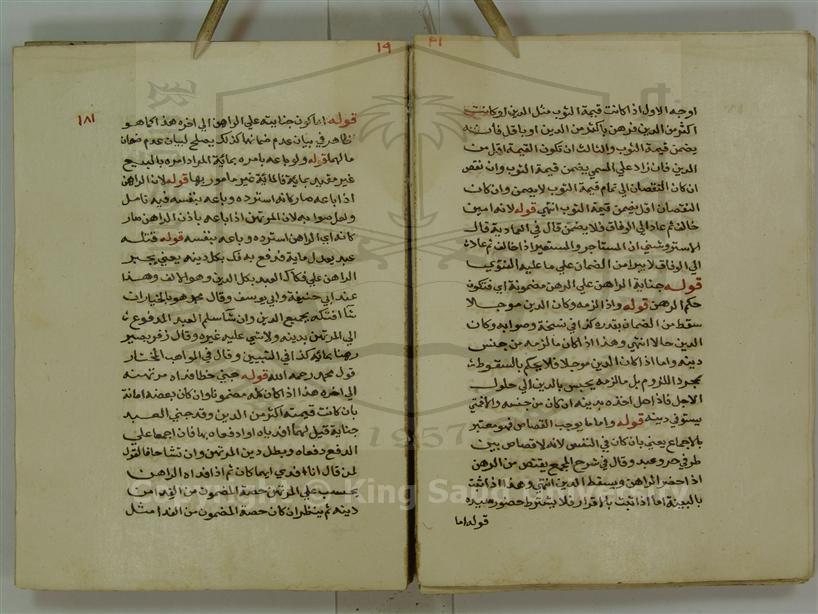 ٤١
اوجه الاول اذا كانت قيمة الثوب مثل الدين او كانت
اكثر من الدين فرهن باكثر من الدين او باقل فانه
يضمن قيمة الثوب والثالث ان تكون القيمة اقل من
الدين فان زاد علي المسمي يضمن قيمة الثوب وان نقص
ان كان النقصان الي تمام قيمة الثوب لا يضمن وان كان
النقصان اقل يضمن قيمة الثوب انتهي قوله لانه امين
خالف ثم عاد الي الوفاق فلا يضمن قال في العمادية قال
الاستروشني ان المستاجر والمستعير اذا خالف ثم عادا
الي الوفاق لا يبرا من الضمان علي ما عليه الفتوي
قوله جناية الراهن علي الرهن مضمونة اي فتكون
حكم الرهن قوله واذا لزمه وكان الدين موجلا
سقط من الضمان بقدره كذا في نسخة وصوابه وكان
الدين حالا انتهي وهذا اذا كان ما لزمه من جنس
دينه واما اذا كان الدين موجلا فلا يحكم بالسقوط
بمجرد اللزوم بل ما لزمه يحبس بالدين الي حلول
الاجل فاذا حل اخذه بدينه ان كان من جنسه والا فحتي
يستوفي دينه قوله واما ما يوجب القصاص فهو معتبر
بالاجماع يعني بان كان في النفس لانه لا قصاص بين
طرفي حر وعبد وقال في شرح المجمع يقتص من الرهن
اذا حضر الراهن ويسقط الدين انتهي وهذا اذا ثبت
بالبينة اما اذا ثبت بالاقرار فلا يشترط حضور سيده
قوله اما
١٩
١٨١
قوله اما كون جنايته علي الراهن الي اخره هذا كما هو
ظاهر في بيان عدم ضمانها كذلك يصلح لبيان عدم ضمان
مالهما قوله ولو باعه بامره بماية المراد امره بالبيع
غير مقيد بماية فالماية غير مامور بها قوله لان الراهن
اذا باعه صار كانه استرده وباعه بنفسه فيه تامل
ولعل صوابه لان المرتهن اذا باعه باذن الراهن صار
كانه اي الراهن استرده وباعه بنفسه قوله قتله
عبد يعدل ماية فدفع به فك بكل دينه يعني يجبر
الراهن علي فكاك العبد بكل الدين وهو الالف وهذا
عند ابي حنيفة وابي يوسف وقال محمد هو بالخيار ان
شا افتكه بجميع الدين وان شا سلم العبد المدفوع
الي المرتهن بدينه ولا شي عليه غيره وقال زفر يصير
رهنا بماية كذا في التبيين وقال في المواهب المختار
قول محمد رحمه الله قوله جني خطا فداه مرتهنه
الي اخره هذا اذا كان كله مضمونا وان كان بعضه امانة
بان كانت قيمته اكثر من الدين وقد جني العبد
جناية قيل لهما افدياه او ادفعاه بها فان اجمعا علي
الدفع دفعاه وبطل دين المرتهن وان تشاحا فالقول
لمن قال انا افدي ايهما كان ثم اذا فداه الراهن
يحسب علي المرتهن حصة المضمون من الفدا من
دينه ثم ينظر ان كان حصة المضمون من الفدا مثل
1957
Copyright © King Saud University